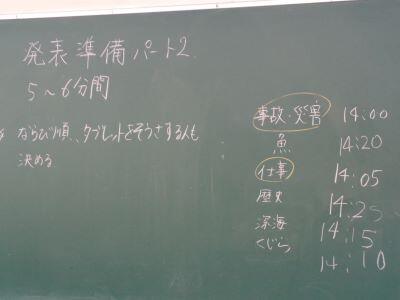 発表準備パート2
5〜6分間
ならび順、タブレットをそうさする人も
決める
事故・災害 14:00
魚 14:20
仕事 14:05
歴史 14:25
深海 14:15
くじら 14:10